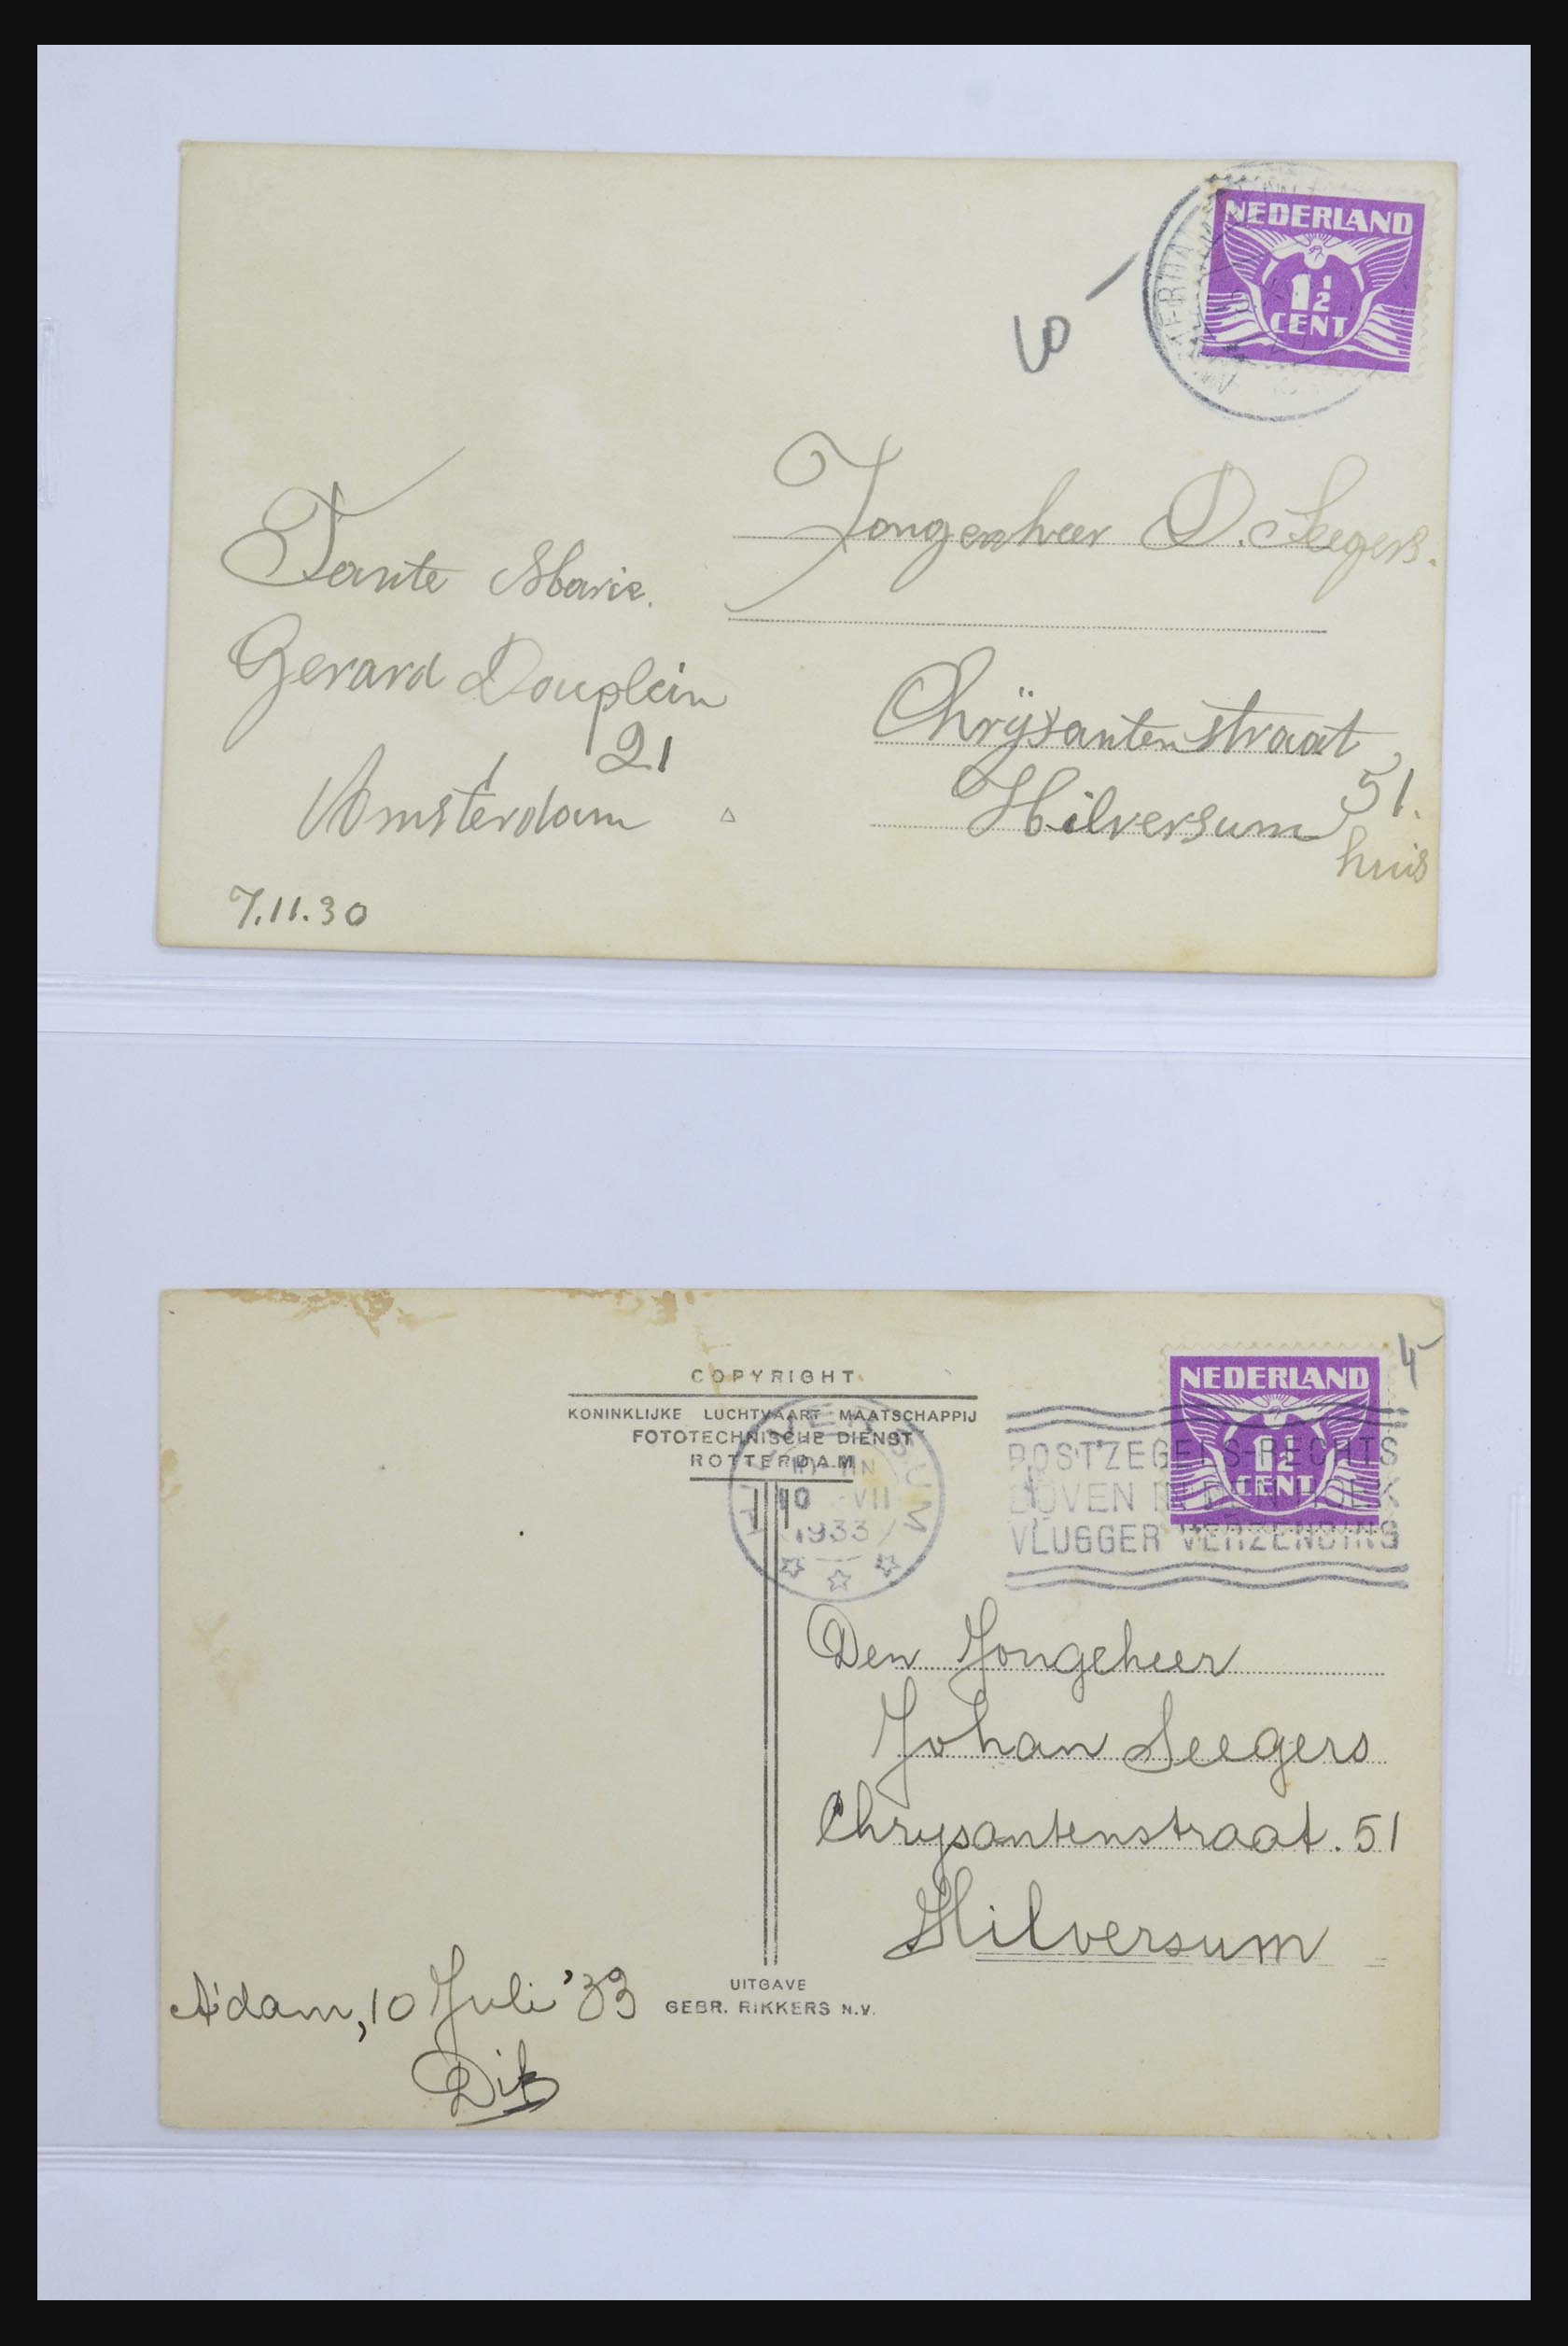 NEDERLAND
1½
CENT
10 –
Jongenheer D. Seegers.
Tante Marie.
Gerard Douplein
21
Amsterdam
7.11.30
Chrÿsantenstraat
51.
Hilversum
huis
COPYRIGHT
KONINKLIJKE LUCHTVAART MAATSCHAPPIJ
FOTOTECHNISCHE DIENST
ROTTERDAM
10 VII
1933
4
NEDERLAND
1½
CENT
POSTZEGELS RECHTS
BOVEN IN DEN HOEK
VLUGGER VERZENDING
Den Jongeheer
Johan Seegers
Chrysantenstraat. 51
Hilversum
A'dam, 10 Juli '33
Dik
UITGAVE
GEBR. RIKKERS N.V.